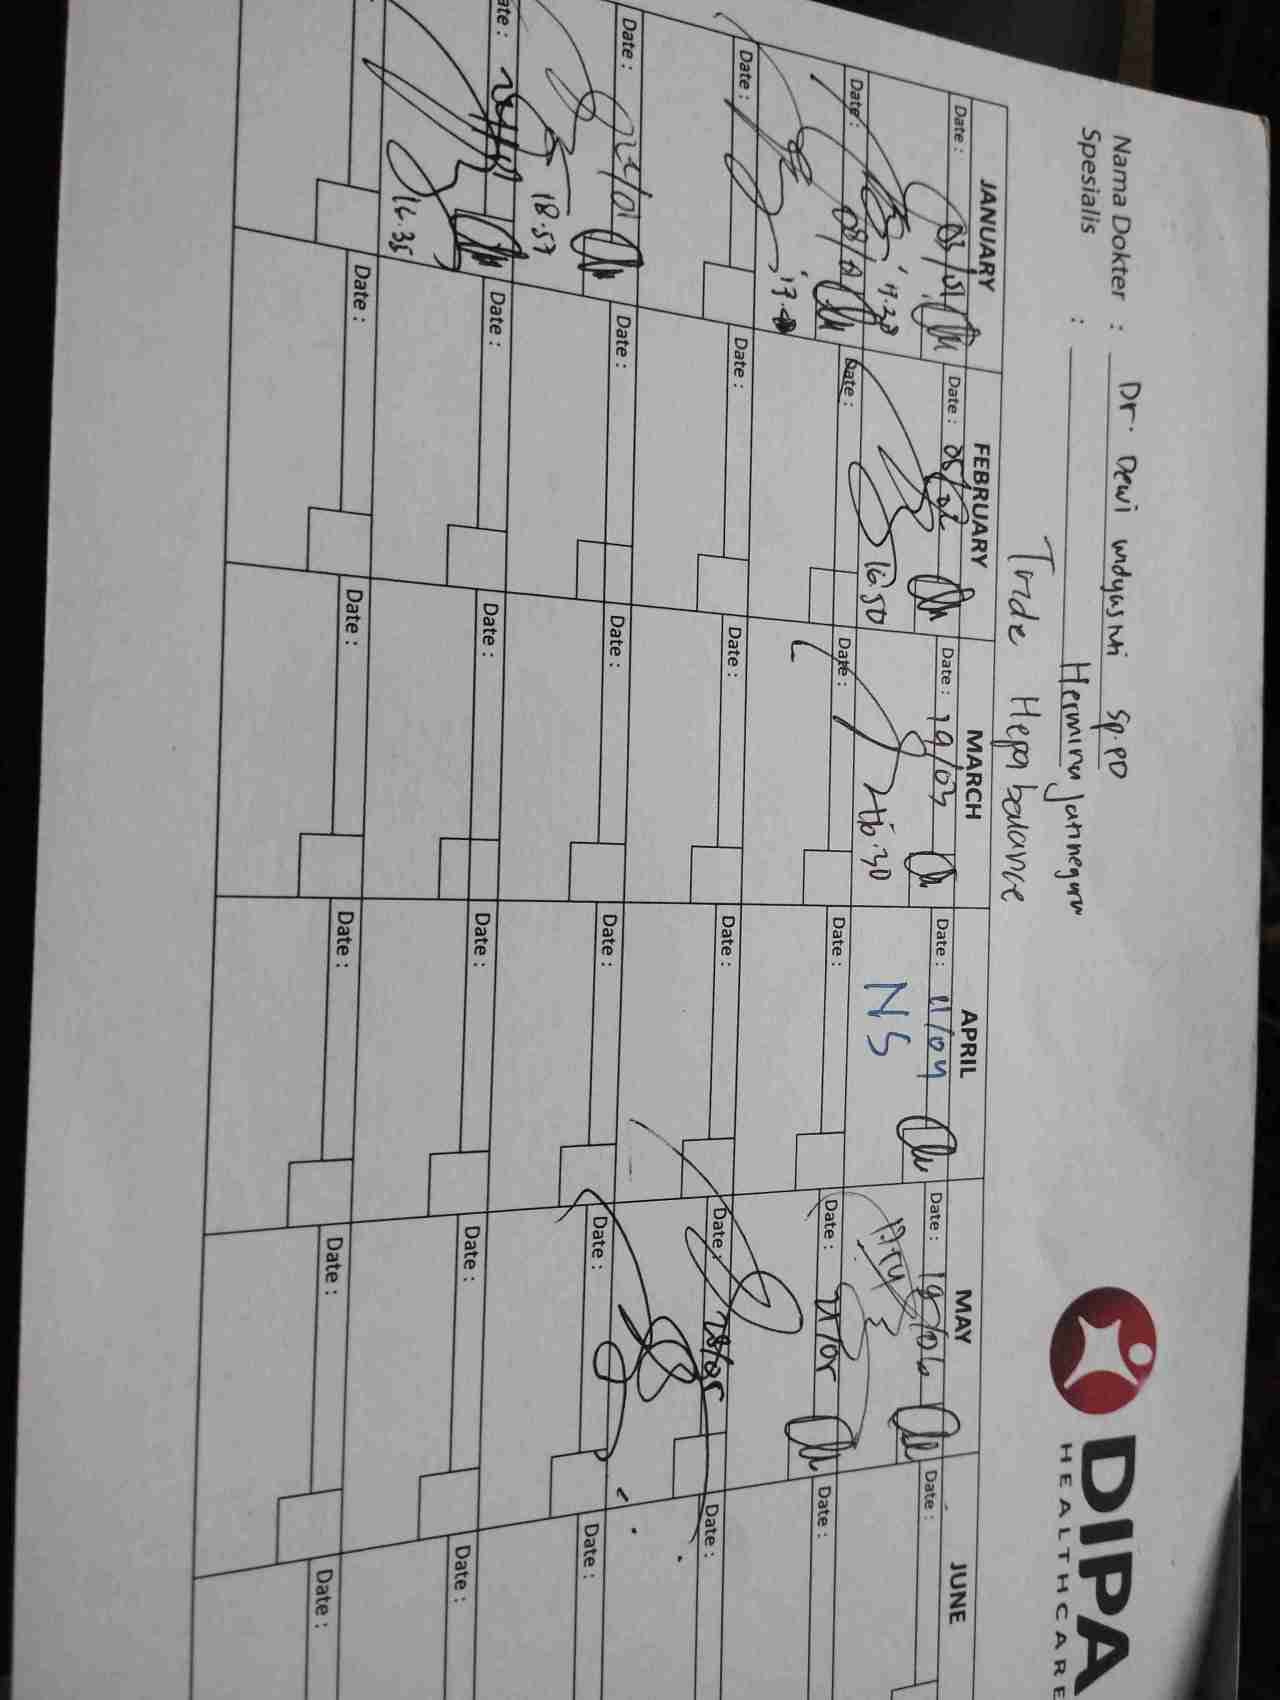 DIPA
HEALTHCARE
Nama Dokter : Dr. Dewi Sp.PD
Spesialis : Hermina Jatinegara
Hepabalance
JANUARY FEBRUARY MARCH APRIL MAY JUNE
Date : 03/01 Date : 05/02 Date : 19/03 Date : 11/04 Date : Date :
17.20 16.50 16.30 NS
Date : 08/01 Date : Date : Date : Date : 21/05 Date :
Date : Date : Date : Date : Date : 28/05 Date :
Date : 24/01 Date : Date : Date : Date : Date :
18.57
Date : Date : Date : Date : Date : Date :
16.35
Date : Date : Date : Date : Date :